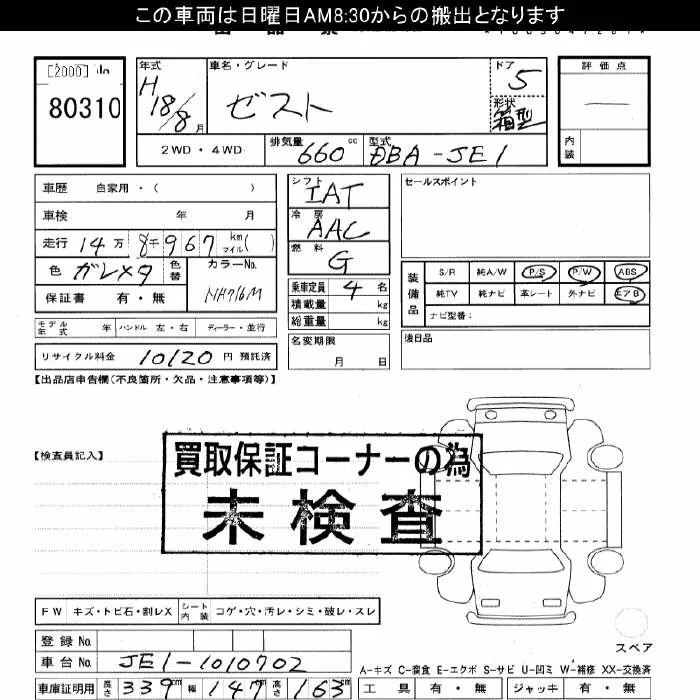 この車両は日曜日AM8:30からの搬出となります
[2000]
80310
年式 車名・グレード ドア 評価点
H18/8月 ゼスト 5
形状 箱型
2WD・4WD 排気量 660cc 型式 DBA-JE1 内装
車歴 自家用・( )
車検 年 月
走行 14万8千967 km マイル( )
色 ガレメタ 色替 カラーNo. NH716M
保証書 有・無
モデル年式 年 ハンドル 左・右 ディーラー・並行
リサイクル料金 10120 円 預託済
シフト IAT
冷房 AAC
燃料 G
乗車定員 4 名
積載量 kg
総重量 kg
名変期限 月 日
セールスポイント
装備品 S/R 純A/W P/S P/W ABS
純TV 純ナビ 革シート 外ナビ エアB
ナビ型番:
後日品
【出品店申告欄(不良箇所・欠品・注意事項等)】
【検査員記入】
買取保証コーナーの為
未検査
FW キズ・トビ石・割レX シート内装 コゲ・穴・汚レ・シミ・破レ・スレ
登録No.
車台No. JE1-1010702
スペア
車庫証明用 長さ 339cm 幅 147cm 高さ 163cm
A-キズ C-腐食 E-エクボ S-サビ U-凹ミ W-補修 XX-交換済
工具 有・無 ジャッキ 有・無